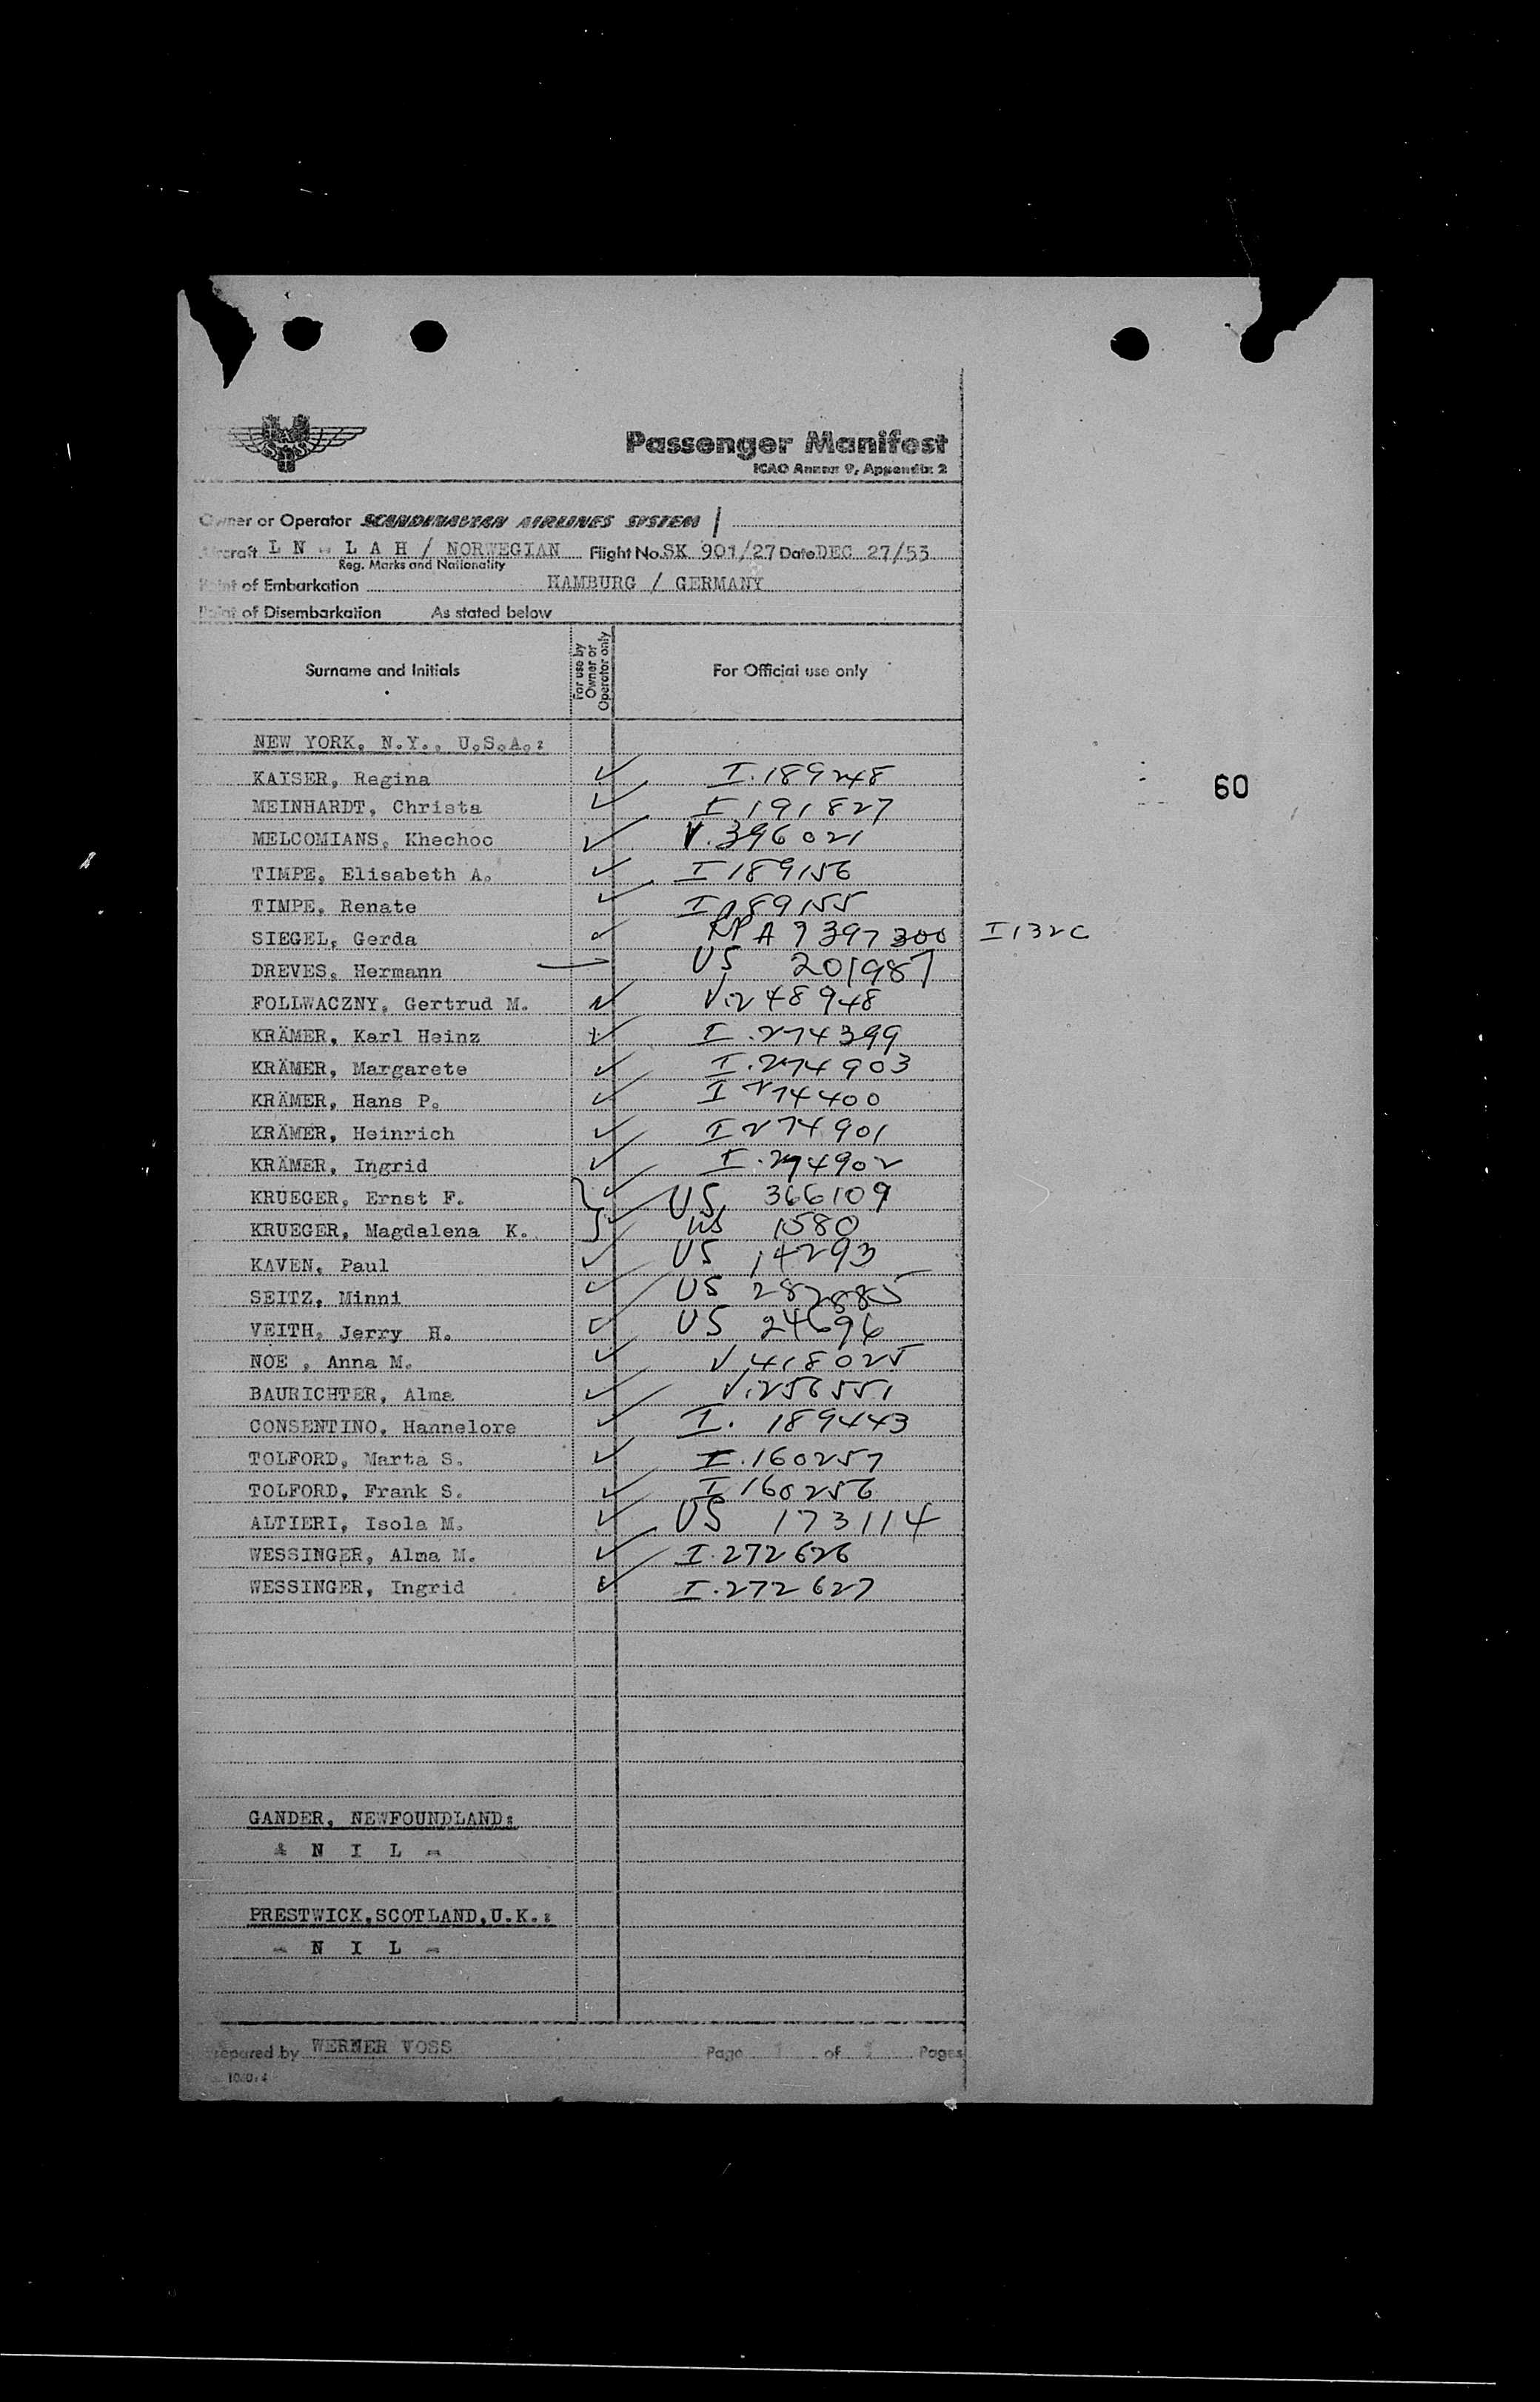 Passenger Manifest
ICAO Annex 9, Appendix 2
Owner or Operator SCANDINAVIAN AIRLINES SYSTEM
Aircraft L N - L A H / NORWEGIAN Flight No. SK 901/27 Date DEC 27/53
Reg. Marks and Nationality
Point of Embarkation HAMBURG / GERMANY
Point of Disembarkation As stated below
Surname and Initials For use by Owner or Operator only For Official use only
NEW YORK, N.Y., U.S.A.:
KAISER, Regina I.189248
60
MEINHARDT, Christa I 191827
MELCOMIANS, Khechoo V.396021
TIMPE, Elisabeth A. I 189156
TIMPE, Renate I 189155
SIEGEL, Gerda RP A 9397300 I 132C
DREVES, Hermann US 201987
FOLLWACZNY, Gertrud M. V.248948
KRÄMER, Karl Heinz I.274399
KRÄMER, Margarete I.274903
KRÄMER, Hans P. I 274400
KRÄMER, Heinrich I 274901
KRÄMER, Ingrid I.274902
KRUEGER, Ernst F. US 366109
KRUEGER, Magdalena K. US 1580
KAVEN, Paul US 14293
SEITZ, Minni US 282885
VEITH, Jerry H. US 24696
NOE , Anna M. V 418025
BAURICHTER, Alma V.256551
CONSENTINO, Hannelore I. 189443
TOLFORD, Marta S. I.160257
TOLFORD, Frank S. I 160256
ALTIERI, Isola M. US 173114
WESSINGER, Alma M. I.272626
WESSINGER, Ingrid I.272627
GANDER, NEWFOUNDLAND:
- N I L -
PRESTWICK,SCOTLAND,U.K.:
- N I L -
Prepared by WERNER VOSS Page 1 of 1 Pages